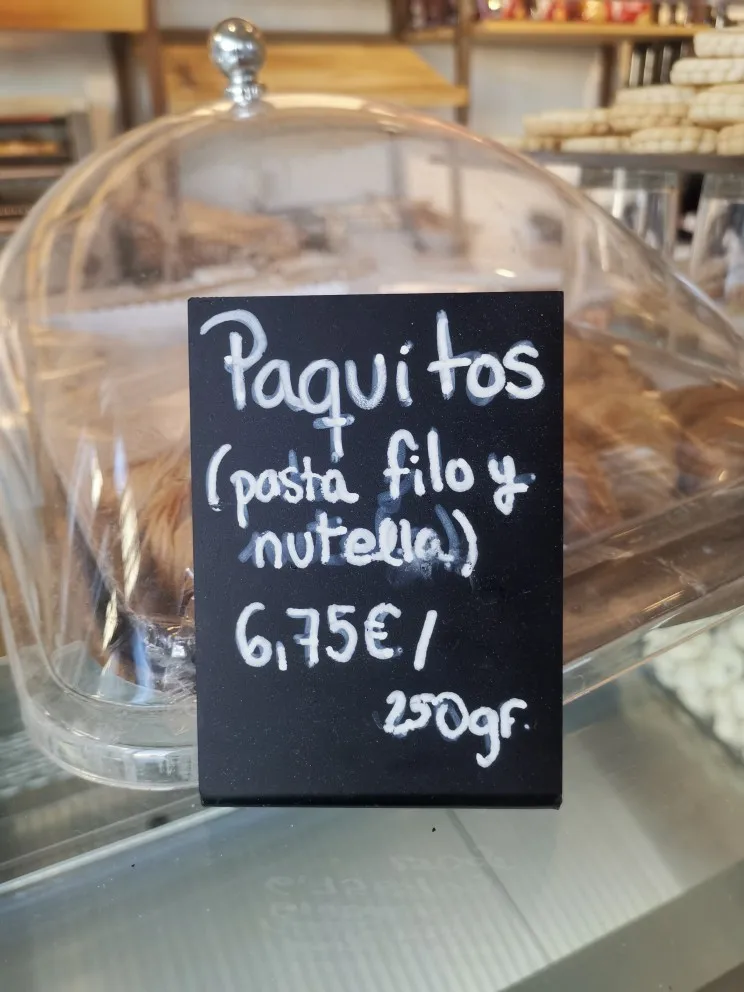 Paquitos
(pasta filo y
nutella)
6,75€/
250gr.